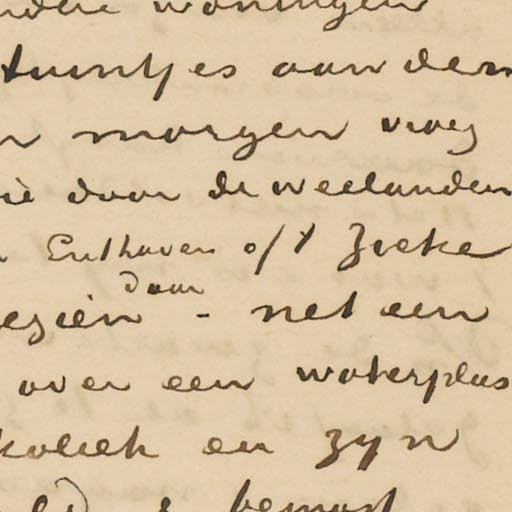 woningen
tuintjes aan den
morgen vroeg
door de weelanden
Enthoven o/t Zieke
daar
gezien - net een
over een waterplas
koliek en zyn
bemost